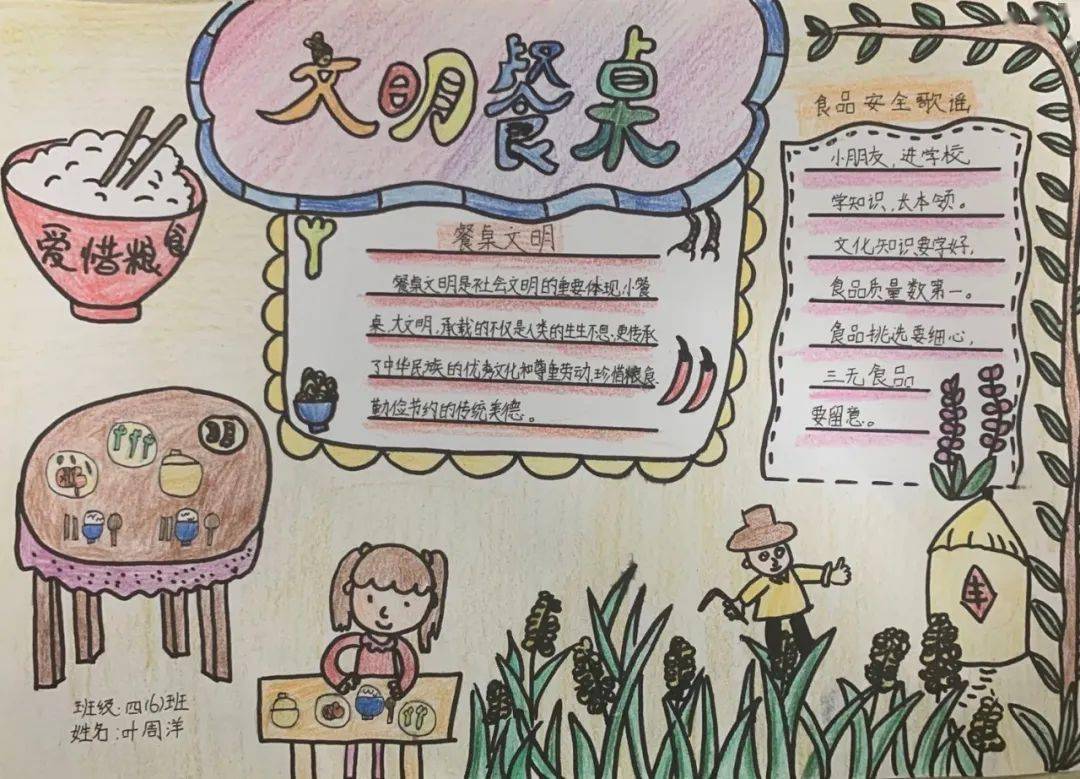 文明餐桌
爱惜粮食
餐桌文明
餐桌文明是社会文明的重要体现,小餐
桌,大文明,承载的不仅是人类的生生不息,更传承
了中华民族的优秀文化和尊重劳动,珍惜粮食
勤俭节约的传统美德。
食品安全歌谣
小朋友,进学校
学知识,长本领。
文化知识要学好,
食品质量数第一。
食品挑选要细心,
三无食品
要留意。
班级:四(6)班
姓名:叶周洋